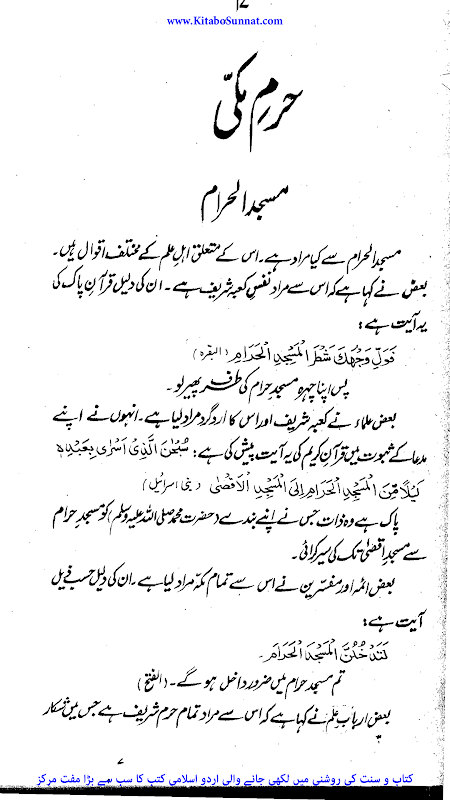 ۱۷
www.KitaboSunnat.com
حرمِ مکّی
مسجد الحرام
مسجد الحرام سے کیا مراد ہے۔ اس کے متعلق اہلِ علم کے مختلف اقوال ہیں۔
بعض نے کہا ہے کہ اس سے مراد نفسِ کعبہ شریف ہے۔ ان کی دلیل قرآنِ پاک کی
یہ آیت ہے:
فَوَلِّ وَجْهَكَ شَطْرَ الْمَسْجِدِ الْحَرَامِ (البقرہ)
پس اپنا چہرہ مسجدِ حرام کی طرف پھیر لو۔
بعض علماء نے کعبہ شریف اور اس کا اردگرد مراد لیا ہے۔ انہوں نے اپنے
مدعا کے ثبوت میں قرآنِ کریم کی یہ آیت پیش کی ہے: سُبْحٰنَ الَّذِيْ اَسْرٰى بِعَبْدِهٖ
لَيْلًا مِّنَ الْمَسْجِدِ الْحَرَامِ اِلَى الْمَسْجِدِ الْاَقْصَى (بنی اسرائیل)
پاک ہے وہ ذات جس نے اپنے بندے (حضرت محمد صلی اللہ علیہ وسلم) کو مسجدِ حرام
سے مسجدِ اقصیٰ تک کی سیر کرائی۔
بعض ائمہ اور مفسّرین نے اس سے تمام مکّہ مراد لیا ہے۔ ان کی دلیل حسبِ ذیل
آیت ہے:
لَتَدْخُلُنَّ الْمَسْجِدَ الْحَرَامَ۔
تم مسجدِ حرام میں ضرور داخل ہو گے۔ (الفتح)
بعض اربابِ علم نے کہا ہے کہ اس سے مراد تمام حرم شریف ہے جس میں شکار
کتاب و سنت کی روشنی میں لکھی جانے والی اردو اسلامی کتب کا سب سے بڑا مفت مرکز